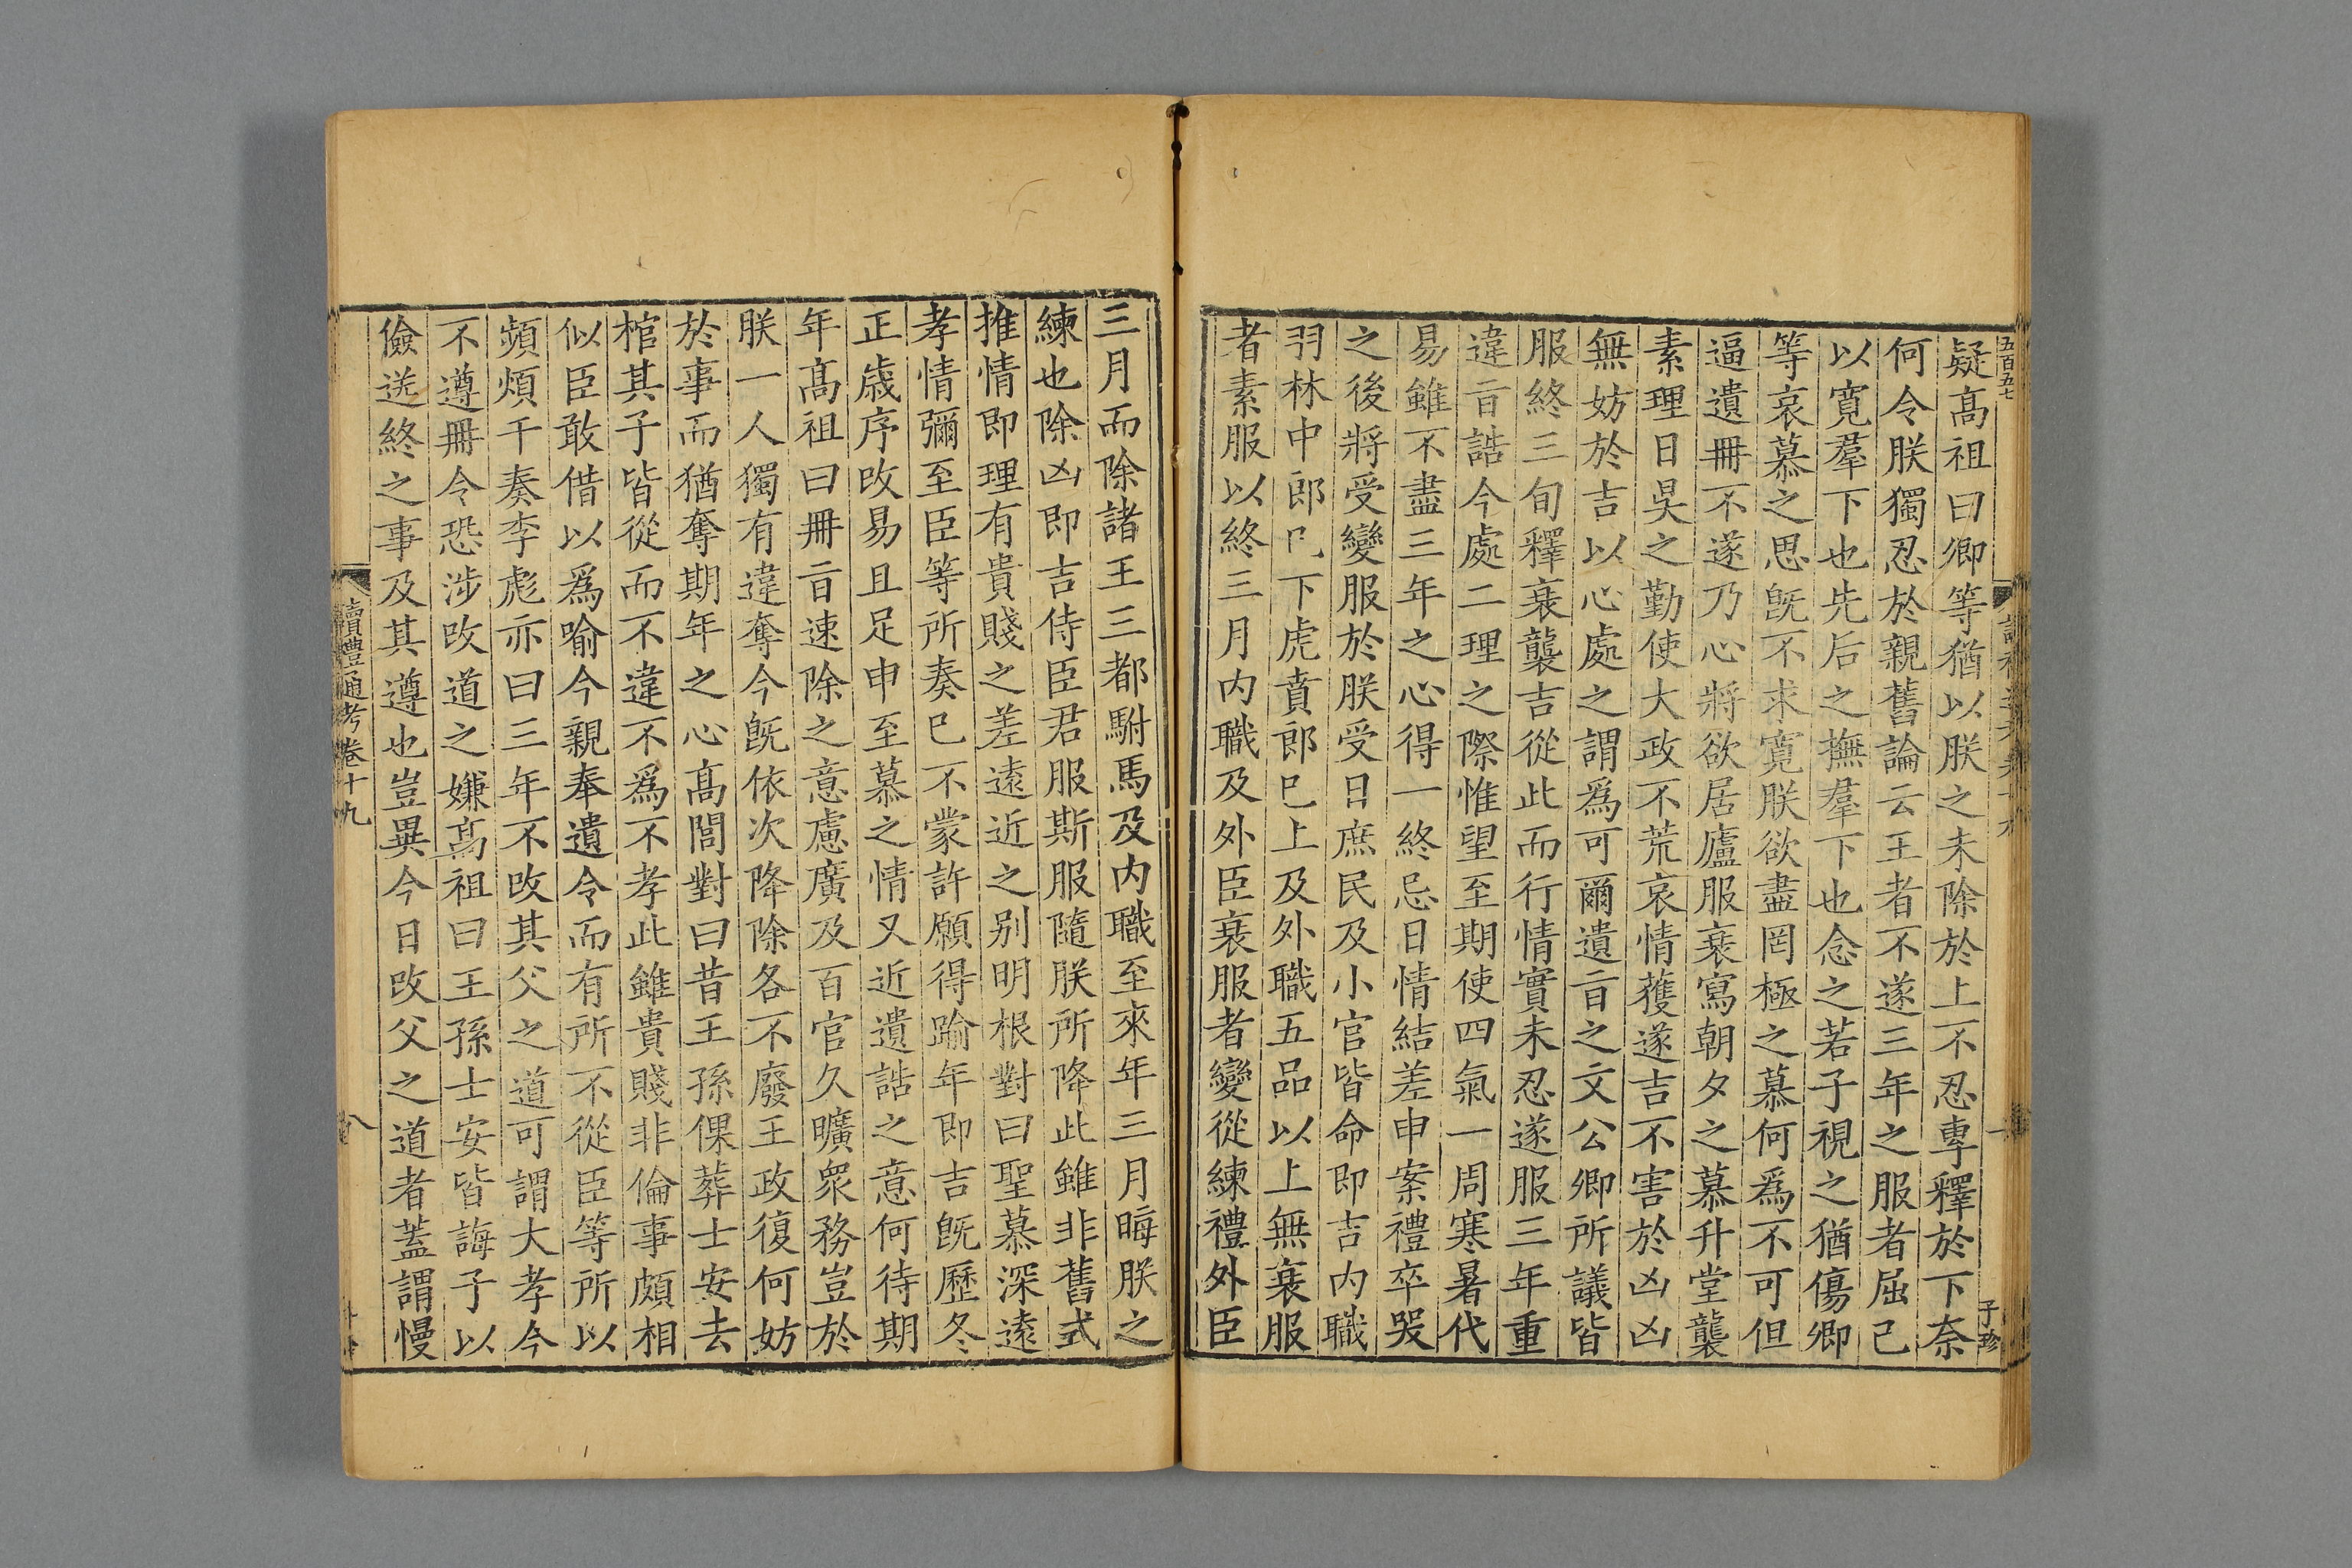 五百五七
子珍
疑髙祖曰卿等猶以朕之未除於上不忍專釋於下奈
何令朕獨忍於親舊論云王者不遂三年之服者屈己
以寛羣下也先后之撫羣下也念之若子視之猶傷卿
等哀慕之思旣不求寛朕欲盡罔極之慕何爲不可但
逼遺冊不遂乃心將欲居廬服衰寫朝夕之慕升堂襲
素理日昃之勤使大政不荒哀情獲遂吉不害於凶凶
無妨於吉以心處之謂爲可爾遺㫖之文公卿所議皆
服終三旬釋衰襲吉從此而行情實未忍遂服三年重
違㫖誥今處二理之際惟望至期使四氣一周寒暑代
易雖不盡三年之心得一終忌日情結差申案禮卒哭
之後將受變服於朕受日庶民及小官皆命即吉内職
羽林中郎巳下虎賁郎巳上及外職五品以上無衰服
者素服以終三月内職及外臣衰服者變從練禮外臣
三月而除諸王三都駙馬及内職至來年三月晦朕之
練也除凶即吉侍臣君服斯服隨朕所降此雖非舊式
推情即理有貴賤之差遠近之别明根對曰聖慕深遠
孝情彌至臣等所奏巳不蒙許願得踰年即吉旣歷冬
正歲序改易且足申至慕之情又近遺誥之意何待期
年髙祖曰冊㫖速除之意慮廣及百官久曠衆務豈於
朕一人獨有違奪今旣依次降除各不廢王政復何妨
於事而猶奪期年之心髙閭對曰昔王孫倮葬士安去
棺其子皆從而不違不爲不孝此雖貴賤非倫事頗相
似臣敢借以爲喻今親奉遺令而有所不從臣等所以
頻煩干奏李彪亦曰三年不改其父之道可謂大孝今
不遵冊令恐涉改道之嫌髙祖曰王孫士安皆誨子以
儉送終之事及其遵也豈異今日改父之道者蓋謂慢
讀禮通考卷十九
八